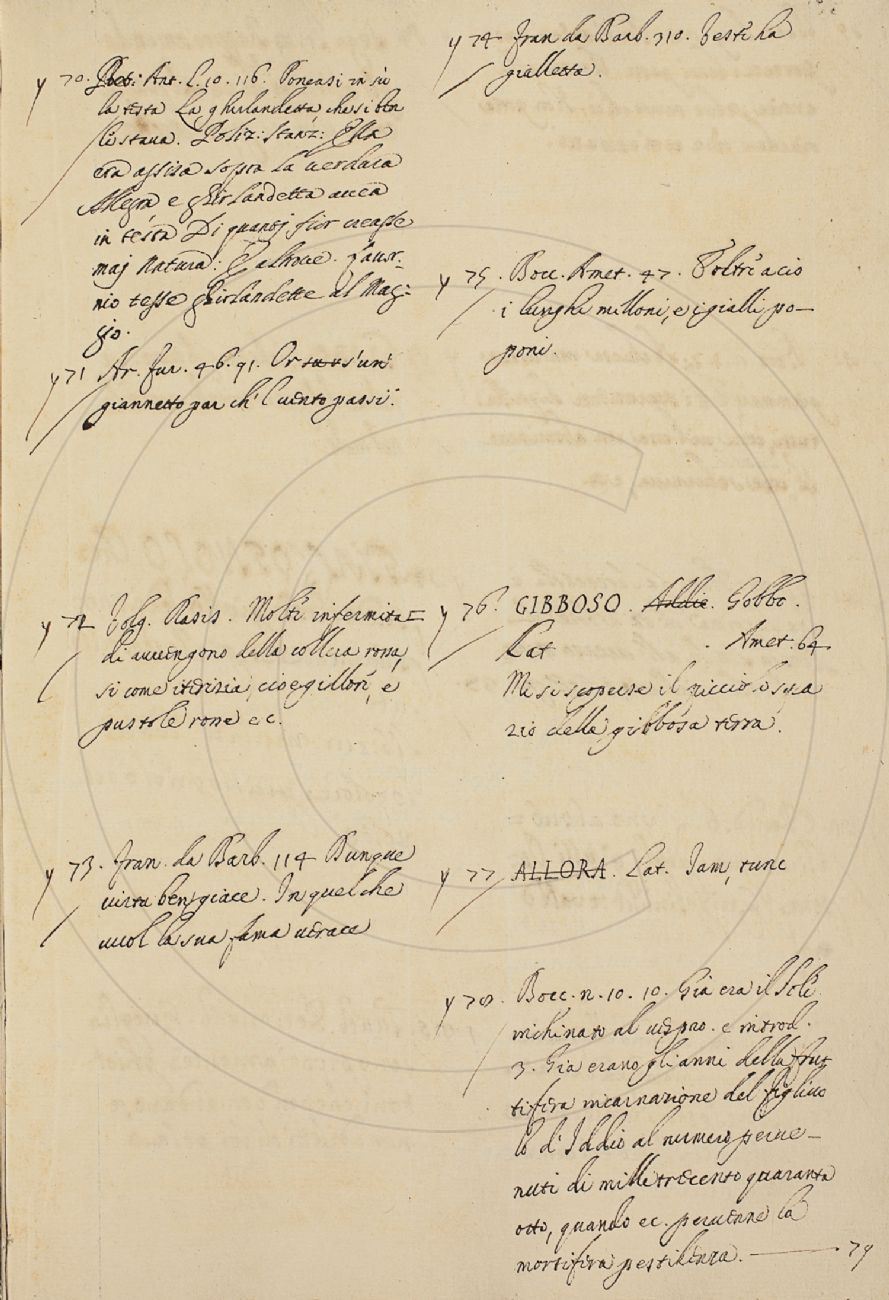 y 70. Poet: Ant. L. 10. 116. Poneasi in sù
la testa La ghirlandetta che si ben
le staua. Poliz: Stanz: Ella
era assisa sopra la uerdura
Allegra e ghirlandetta auea
in testa Di quanti fior creasse
maj Natura: E altroue.
nio tesse ghirlandette al Mag:
gio.
y 71 Ar. fur. 46. 91. Or s'un
giannetto par ch'l uento passi.
y 72 Volg. Rasis. Molte infermita=
di auuengono della collera rossa,
si come iterizia, cioe gillore, e
pustole rosse ec.
y 73. Fran. da Barb. 114 Dunque
uirtu ben giace. In quel che
uuol la sua fama uerace
y 74 Fran da Barb. 310. Vesti ha
gialletta.
y 75. Bocc. Amet. 47. Foltri a cio
i lunghi milloni, e i gialli po-
poni.
y 76. GIBBOSO. Addie. Gobbo.
Lat . Amet. 64
Mi si scoperse il riccio
zio della gibbosa terra.
y 77 ALLORA. Lat. Iam, tunc
y 78. Bocc. n. 10. 10. Già era il sole
inchinato al uespro. e introd.
3. Gia erano gli anni della frut
tifera incarnazione del figliuo
lo d'Iddio al numero perue-
nuti di mille trecento quaranta
otto, quando ec. peruenne la
mortifera pestilenza. 79